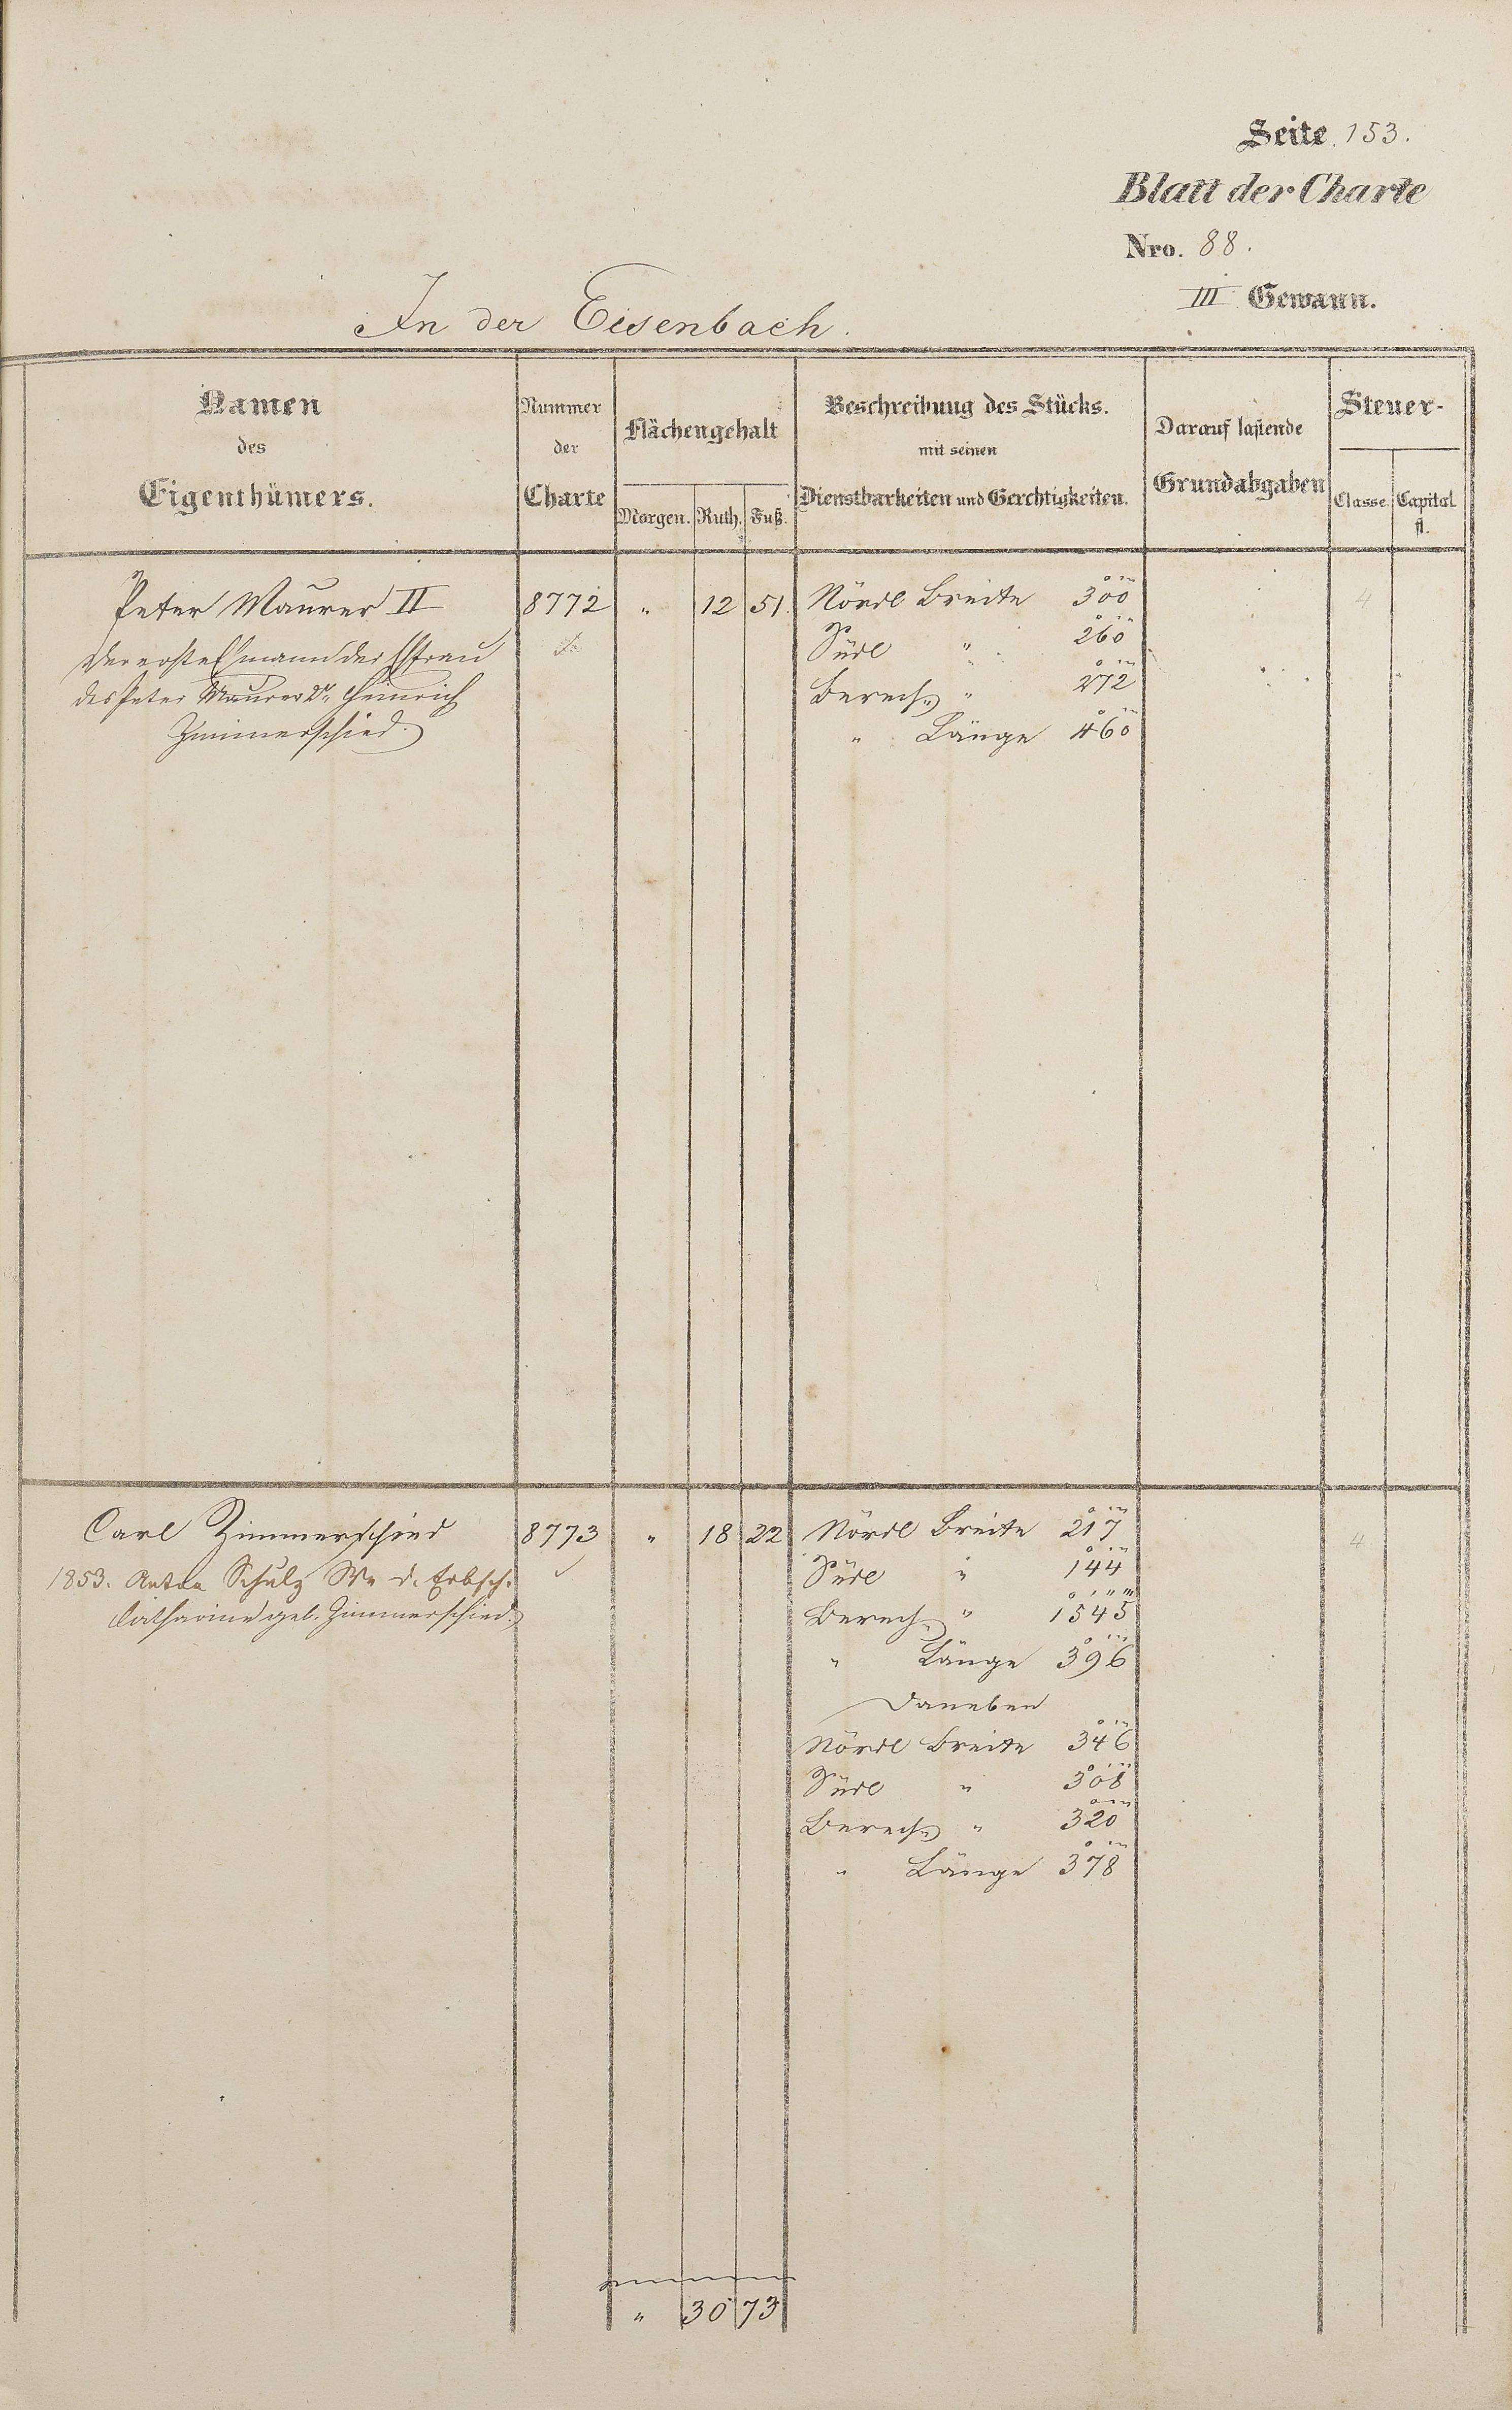 Seite 153.
Blatt der Charte
Nro. 88.
III Gewann.
In der Eisenbach.
Namen
des
Eigenthümers.
Nummer
der
Charte
Flächengehalt
Morgen. Ruth. Fuß.
Beschreibung des Stücks.
mit seinen
Dienstbarkeiten und Gerechtigkeiten.
Darauf lastende
Grundabgaben
Steuer-
Classe. Capital
fl.
Peter Maurer II 8772 " 12 51. Nördl Breite 300 4
der erste Ehmann der Ehfrau Südl " 260
des Peter Maurer 2r, Heinrich Berech. " 272
Zimmerschied. " Länge 460
Carl Zimmerschied 8773 " 18 22 Nördl Breite 217 4
1853. Anton Schulz We d. Erbsch. Südl " 144
Catharine geb. Zimmerschied. Berech. " 1545
" Länge 396
Daneben
Nördl Breite 346
Südl " 308
Berech. " 320
" Länge 378
" 30 73